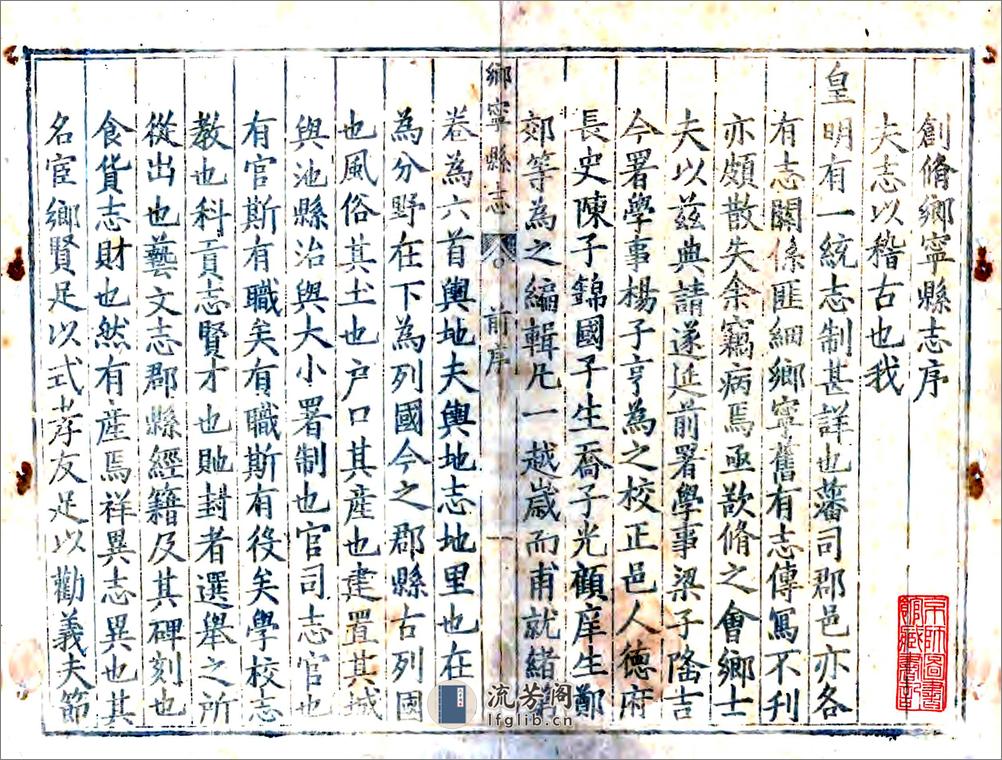 創脩鄉寧縣志序
夫志以稽古也我
皇明有一統志制甚詳也藩司郡邑亦各
有志關係匪細鄉寧舊有志傳寫不刊
亦頗散失余竊病焉亟欲脩之會鄉士
夫以茲典請遂延前署學事梁子隆吉
今署學事楊子亨為之校正邑人德府
長史陳子錦國子生喬子光顧庠生鄭
郊等為之編輯凡一越歲而甫就緒第
鄉寧縣志 前序 一
卷為六首輿地夫輿地志地里也在
為分野在下為列國今之郡縣古列國
也風俗其土也户口其産也建置其城
與池縣治與大小署制也官司志官也
有官斯有職矣有職斯有役矣學校志
教也科貢志賢才也貤封者選舉之所
從出也藝文志郡縣經籍及其碑刻也
食貨志財也然有産焉祥異志異也其
名宦鄉賢足以式孝友足以勸義夫節
流芳阁
lfglib.cn